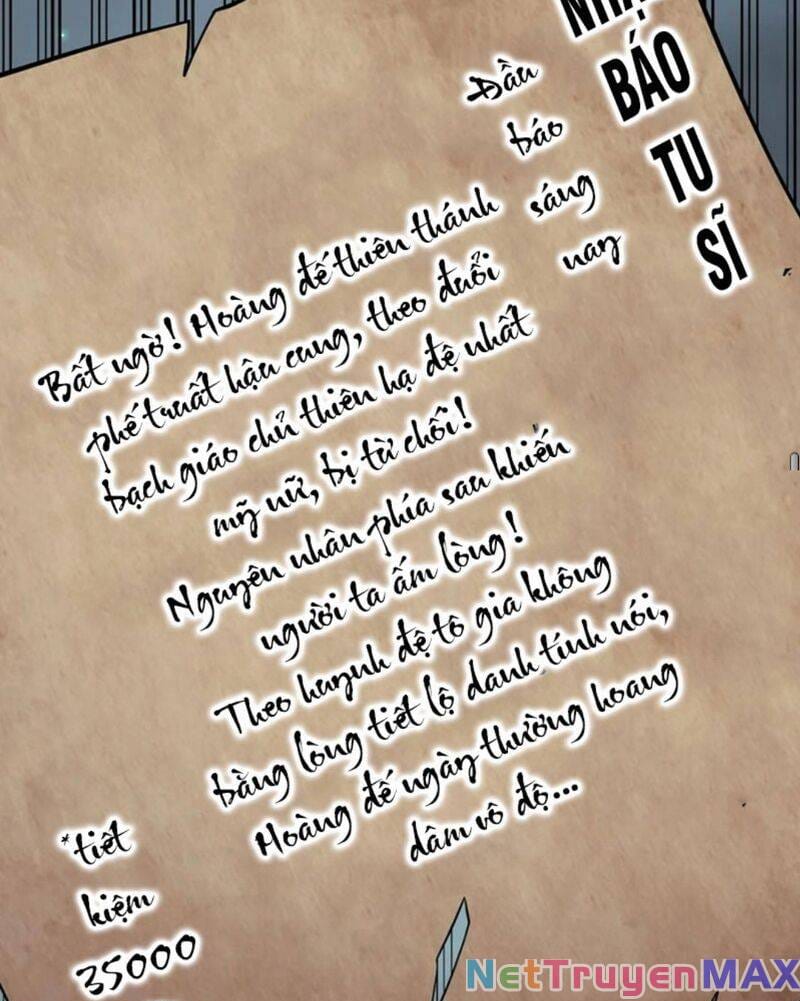 BÁO
TU
SĨ
Đầu
báo
sáng
nay
Bất ngờ! Hoàng đế thiên thánh
phế truất hậu cung, theo đuổi
bạch giáo chủ thiên hạ đệ nhất
mỹ nữ, bị từ chối!
Nguyên nhân phía sau khiến
người ta ấm lòng!
Theo huynh đệ tô gia không
bằng lòng tiết lộ danh tính nói,
Hoàng đế ngày thường hoang
dâm vô độ...
*tiết
kiệm
35000
NetTruyenMAX